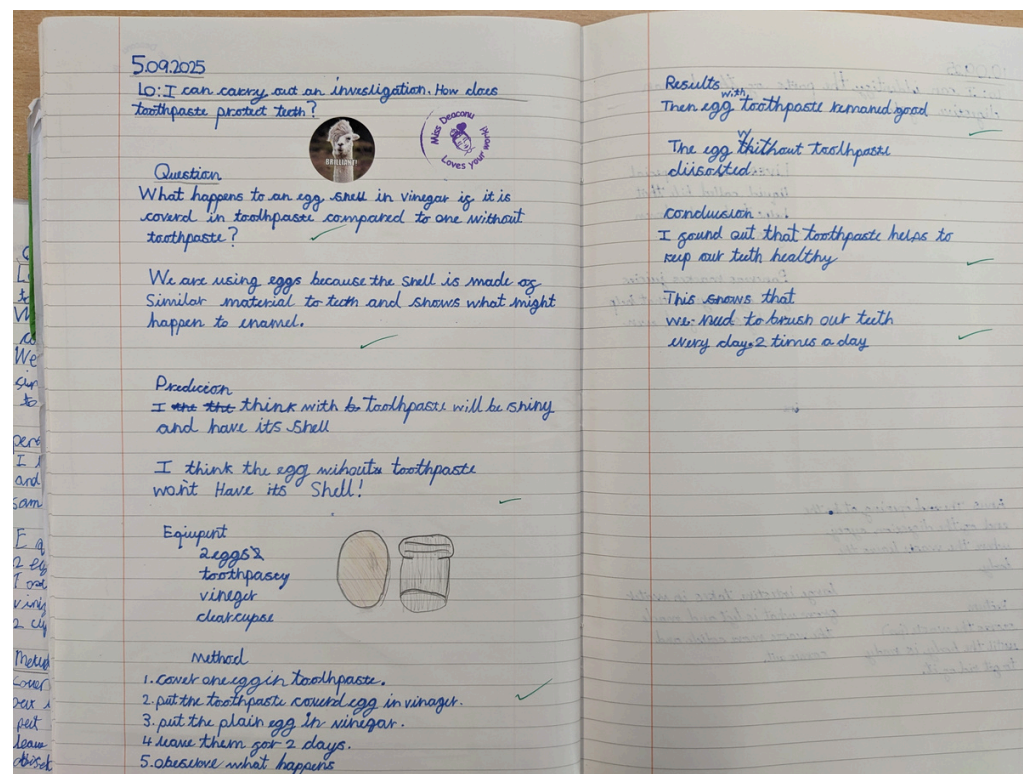 5.09.2025
LO: I can carry out an investigation. How does
toothpaste protect teeth?
BRILLIANT!
Miss Deaconu
Loves your work!
Question
What happens to an egg shell in vinegar if it is
coverd in toothpaste compared to one without
toothpaste?
We are using eggs because the shell is made of
Similar material to teeth and shows what might
happen to enamel.
Predicion
I the the think with b Toothpaste will be shiny
and have its shell
I think the egg wihout toothpaste
won't Have its Shell!
Eqiupent
2 eggs 2
toothpasey
vineger
clear cupse
Method
1. cover one egg in toothpaste.
2. put the toothpaste coverd egg in vinager.
3. put the plain egg in vinegar.
4 leave them for 2 days.
5. obeselve what happens
Results
Then egg with toothpaste remaned good
The egg without toothpaste
diisolted.
conclusion:
I found out that toothpaste helps to
keep our teeth healthy
This shows that
we need to brush our teeth
every day. 2 times a day